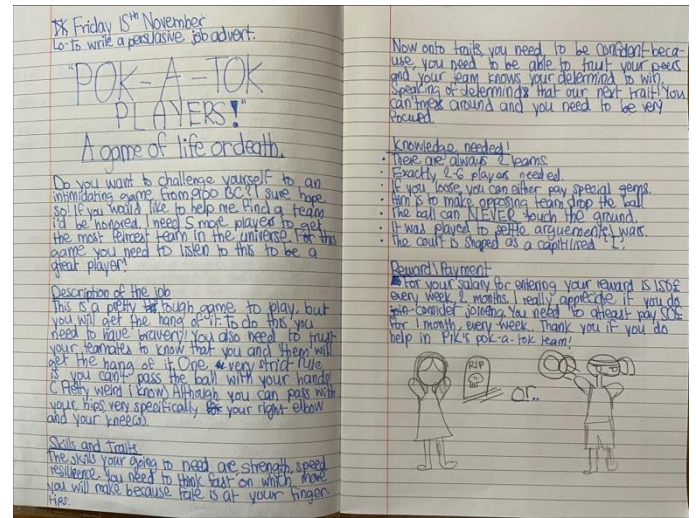 Friday 15th November
Lo-To write a persuasive job advert.
"POK-A-TOK
PLAYERS!"
A game of life or death.
Do you want to challenge yourself to an
intimidating game from 900 BC?I sure hope
so! If you would like to help me find a team
i'd be honored. I need 5 more players to get
the most feircest team in the universe. For this
game you need to listen to this to be a
great player!
Description of the job
This is a pretty tough game to play, but
you will get the hang of it. To do this you
need to have bravery! You also need to trust
your teamates to know that you and them will
get the hang of it. One very strict rule
is you can't pass the ball with your hands!
(Pretty weird I know) Although you can pass with
your hips very specifically your right elbow
and your knee(s).
Skills and Traits
The skills your going to need are, strength, speed
resilience. You need to think fast on which move
you will make because fate is at your finger-
tips.
Now onto traits you need to be confident beca-
use you need to be able to trust your peers
and your team knows your determind to win.
Speaking of determind that our next trait! You
can't mess around and you need to be very
focused.
Knowledge needed!
• There are always 2 teams.
• Exactly 2-6 players needed.
• If you loose, you can either pay special gems.
• Aim is to make opposing team drop the ball
• The ball can NEVER touch the ground.
• It was played to settle arguements/wars.
• The court is shaped as a capitilised "I".
Reward/Payment
For your salary for entering your reward is 150£
every week 2 months. I really appreciate if you do
join consider joining. You need to atleast pay 50£
for 1 month, every week. Thank you if you do
help in Pik's pok-a-tok team!
RIP
or..